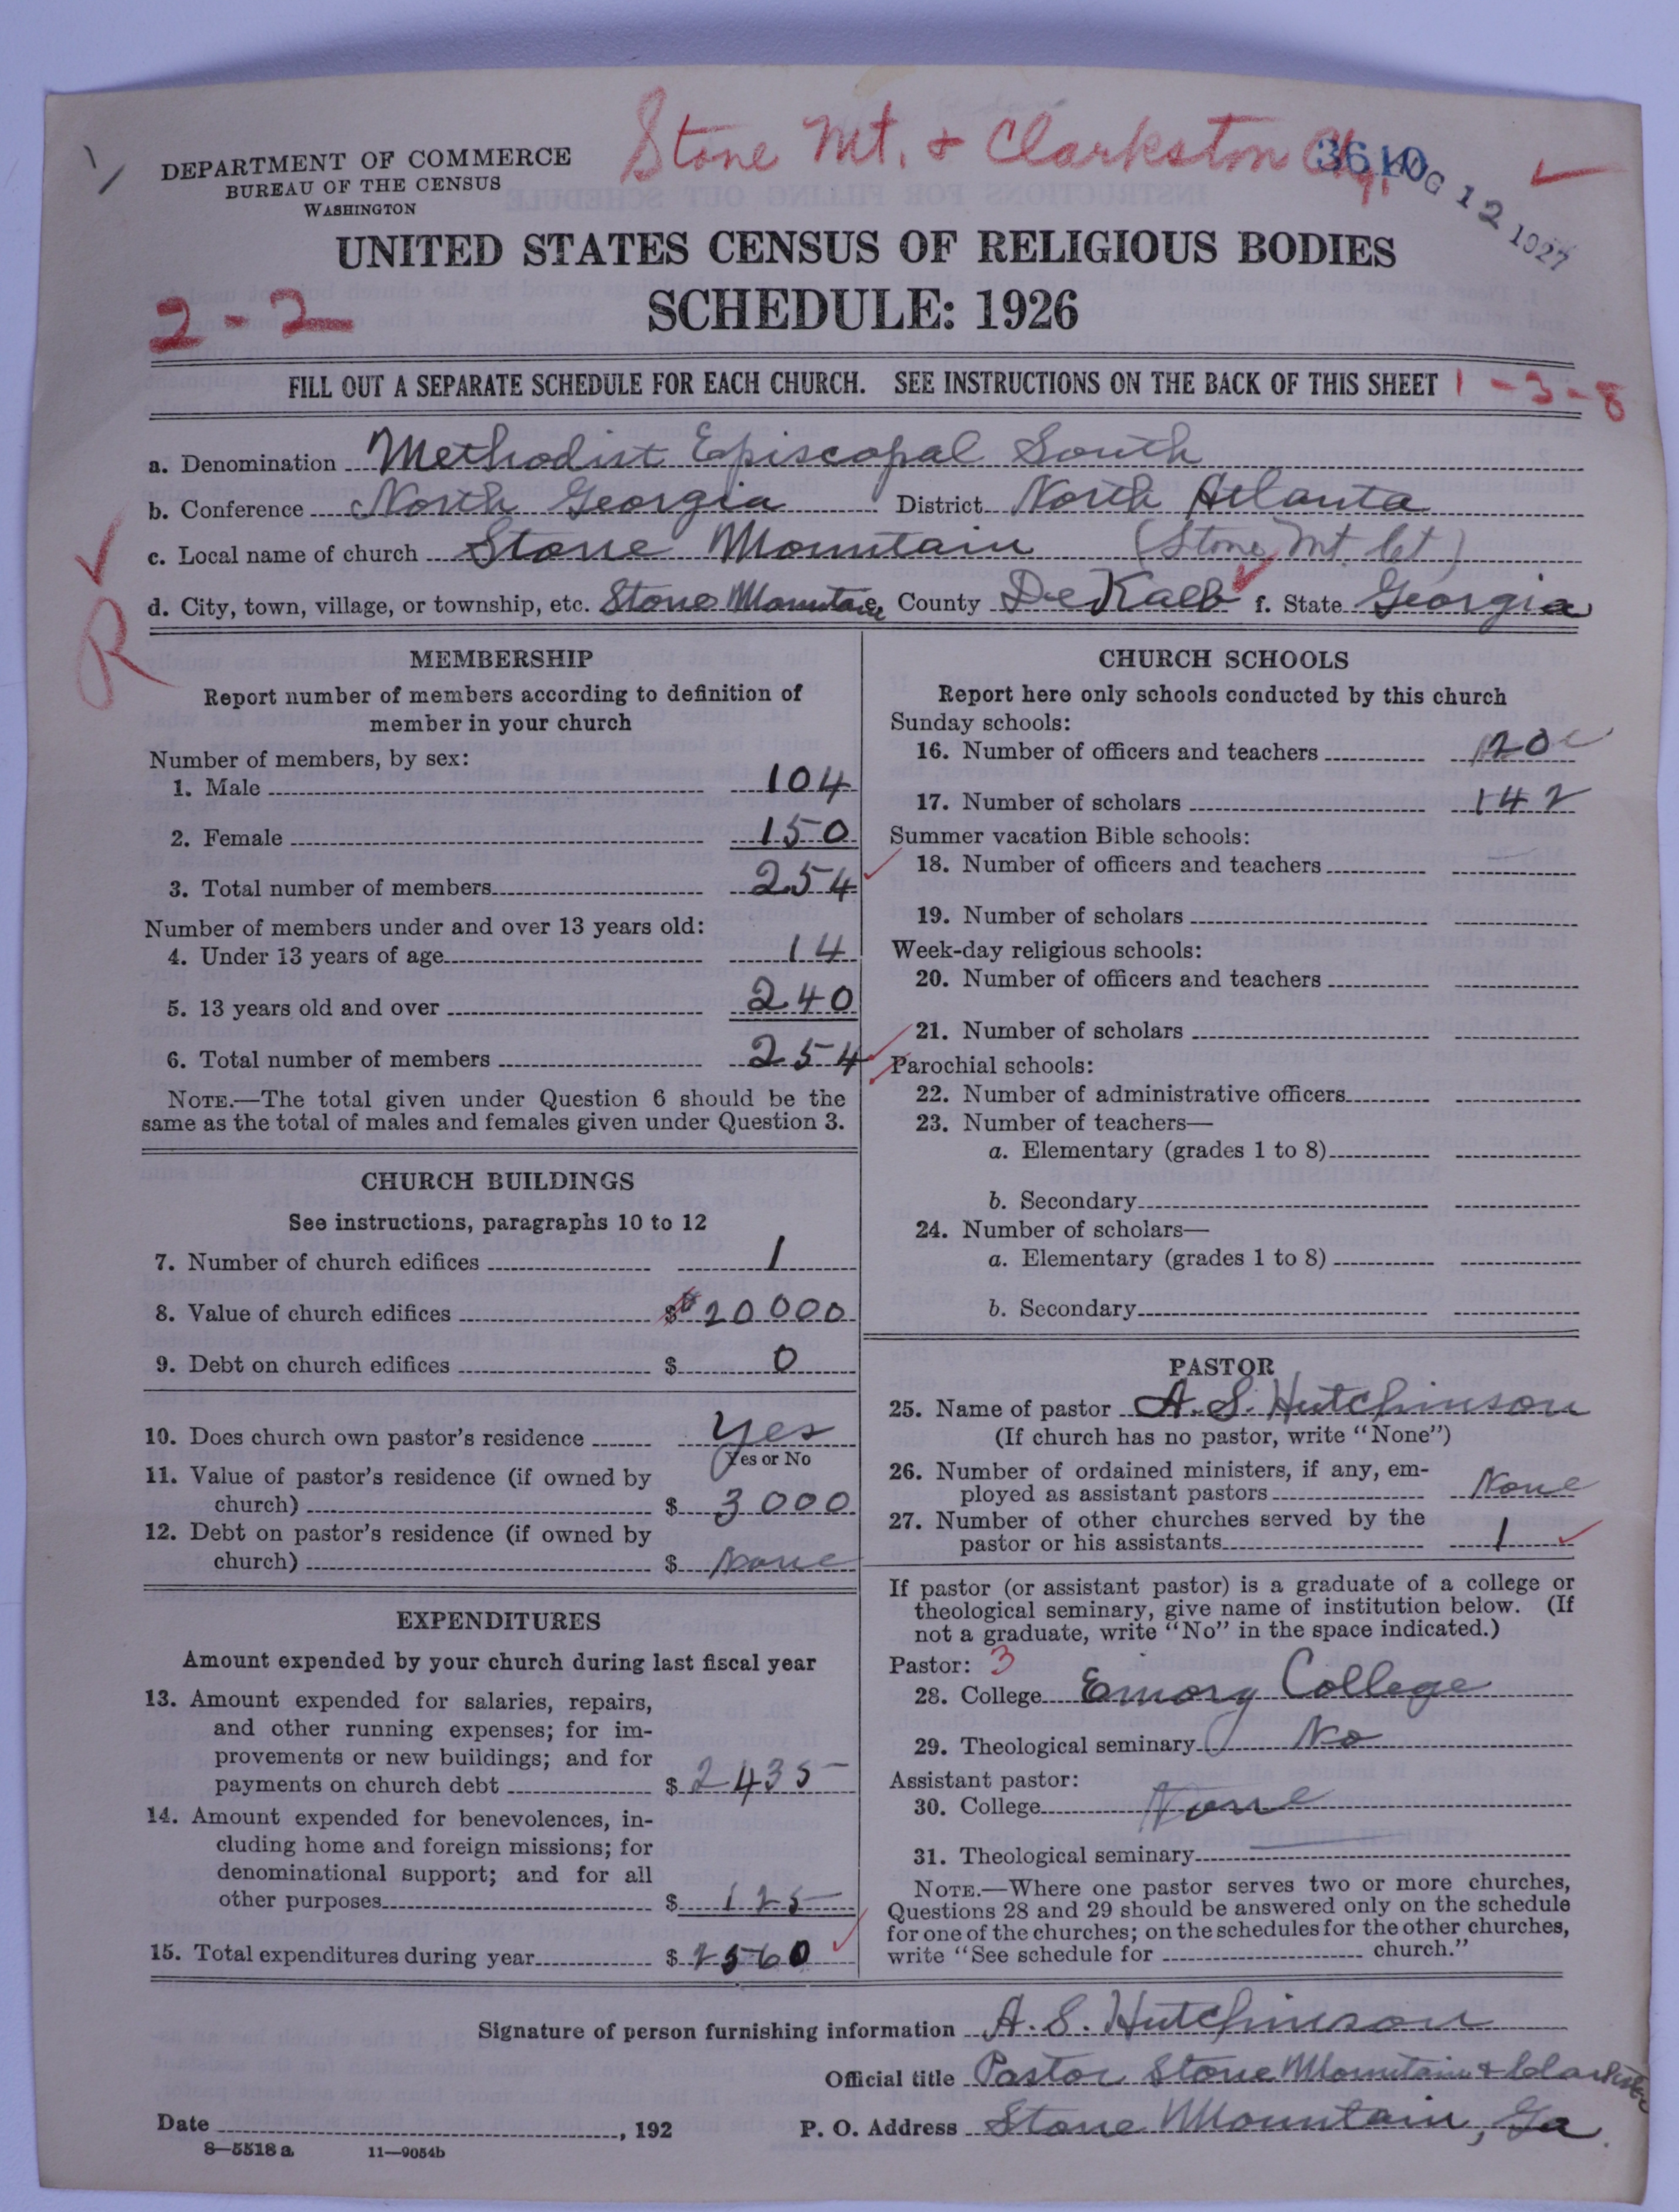 Stone Mt. & Clarkston Chg.
3610
AUG 12 1927
DEPARTMENT OF COMMERCE
BUREAU OF THE CENSUS
WASHINGTON
UNITED STATES CENSUS OF RELIGIOUS BODIES
2-2
SCHEDULE: 1926
FILL OUT A SEPARATE SCHEDULE FOR EACH CHURCH. SEE INSTRUCTIONS ON THE BACK OF THIS SHEET 1-3-8
a. Denomination Methodist Episcopal South
b. Conference North Georgia District North Atlanta
c. Local name of church Stone Mountain (Stone Mt Ct)
d. City, town, village, or township, etc. Stone Mountain e. County DeKalb f. State Georgia
R
MEMBERSHIP
Report number of members according to definition of
member in your church
Number of members, by sex:
1. Male 104
2. Female 150
3. Total number of members 254
Number of members under and over 13 years old:
4. Under 13 years of age 14
5. 13 years old and over 240
6. Total number of members 254
NOTE.—The total given under Question 6 should be the
same as the total of males and females given under Question 3.
CHURCH BUILDINGS
See instructions, paragraphs 10 to 12
7. Number of church edifices 1
8. Value of church edifices $ 20000
9. Debt on church edifices $ 0
10. Does church own pastor's residence yes
Yes or No
11. Value of pastor's residence (if owned by
church) $ 3000
12. Debt on pastor's residence (if owned by
church) $ None
EXPENDITURES
Amount expended by your church during last fiscal year
13. Amount expended for salaries, repairs,
and other running expenses; for im-
provements or new buildings; and for
payments on church debt $ 2435
14. Amount expended for benevolences, in-
cluding home and foreign missions; for
denominational support; and for all
other purposes $ 125
15. Total expenditures during year $ 2560
CHURCH SCHOOLS
Report here only schools conducted by this church
Sunday schools:
16. Number of officers and teachers 20
17. Number of scholars 142
Summer vacation Bible schools:
18. Number of officers and teachers
19. Number of scholars
Week-day religious schools:
20. Number of officers and teachers
21. Number of scholars
Parochial schools:
22. Number of administrative officers
23. Number of teachers—
a. Elementary (grades 1 to 8)
b. Secondary
24. Number of scholars—
a. Elementary (grades 1 to 8)
b. Secondary
PASTOR
25. Name of pastor A. S. Hutchinson
(If church has no pastor, write "None")
26. Number of ordained ministers, if any, em-
ployed as assistant pastors None
27. Number of other churches served by the
pastor or his assistants 1
If pastor (or assistant pastor) is a graduate of a college or
theological seminary, give name of institution below. (If
not a graduate, write "No" in the space indicated.)
Pastor: 3
28. College Emory College
29. Theological seminary No
Assistant pastor:
30. College None
31. Theological seminary
NOTE.—Where one pastor serves two or more churches,
Questions 28 and 29 should be answered only on the schedule
for one of the churches; on the schedules for the other churches,
write "See schedule for church."
Signature of person furnishing information A. S. Hutchinson
Official title Pastor Stone Mountain & Clarkston
Date , 192 P. O. Address Stone Mountain, Ga.
8—5518 a 11—9054b